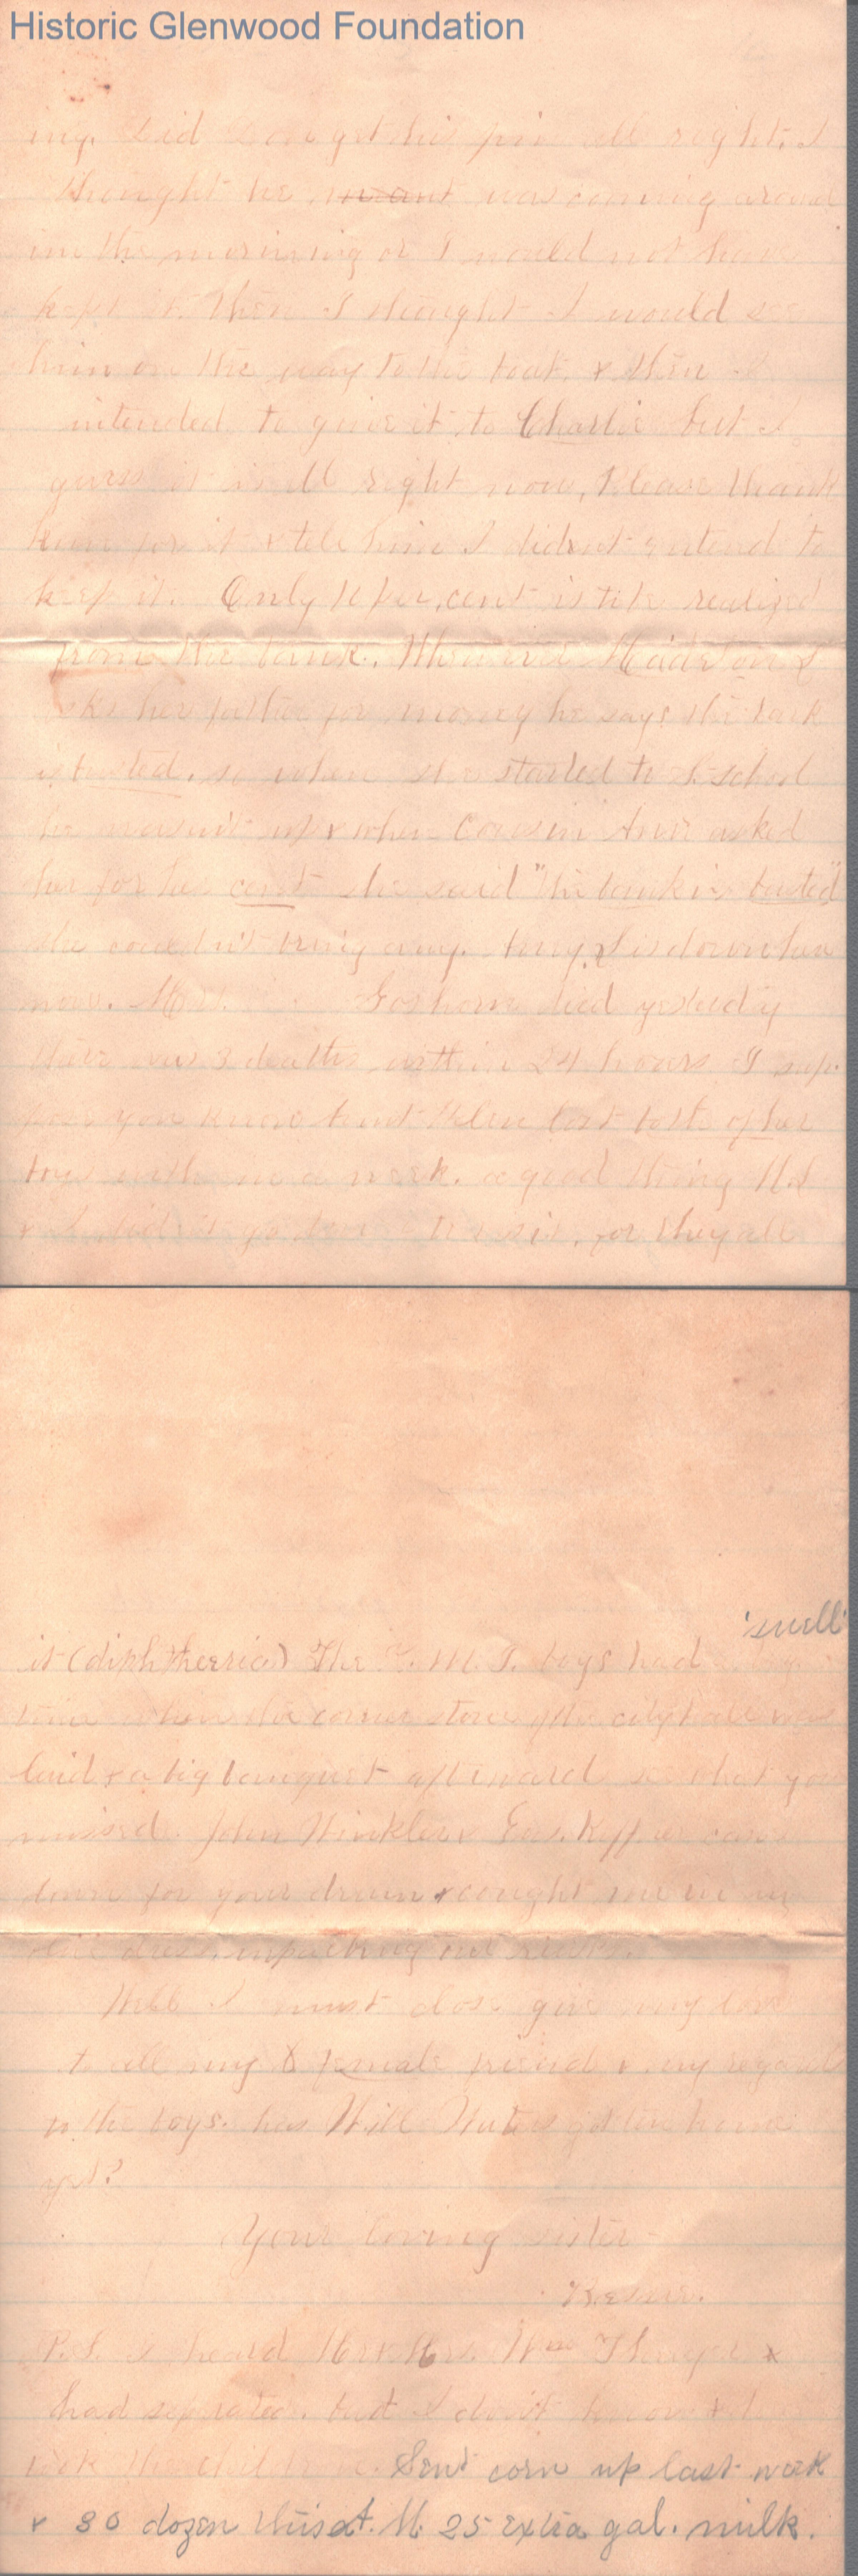 Historic Glenwood Foundation
ing. Did get his pin all right. I
thought he meant was coming around
in the morning or I would not have
kept it. Then I thought I would see
him on the way to the boat, & then I
intended to give it to Charlie but I
guess it is all right now, Please thank
him for it & tell him I didn't intend to
keep it. Only 10 per, cent is to be realized
from the bank. Whenever
asks her father for money he says the bank
is busted, so when she started to S. school
he wasn't up & when Cousin asked
her for her cent she said "the bank is busted"
she couldn't bring any. is down here
now. Goshorn died yesterday
there was 3 deaths within 24 hours I sup-
pose you know Aunt lost both of her
boys within a week. a good thing
& I didn't go to visit, for they all
it (diphtheria) The boys had a big 'swell'
time when the corner stone of the city hall was
laid & a big banquet afterward see what you
missed. John Winkler & came
down for your drum & caught me in my
old dress unpacking
Well I must close give my love
to all my female friends & my regards
to the boys. has Will gotten home
yet?
Your loving sister
Bessie.
P.S. I heard Mr & Mrs. Wm &
had separated, but I don't know
took the children. Sent corn up last week
& 30 dozen this A. M. 25 extra gal. milk.